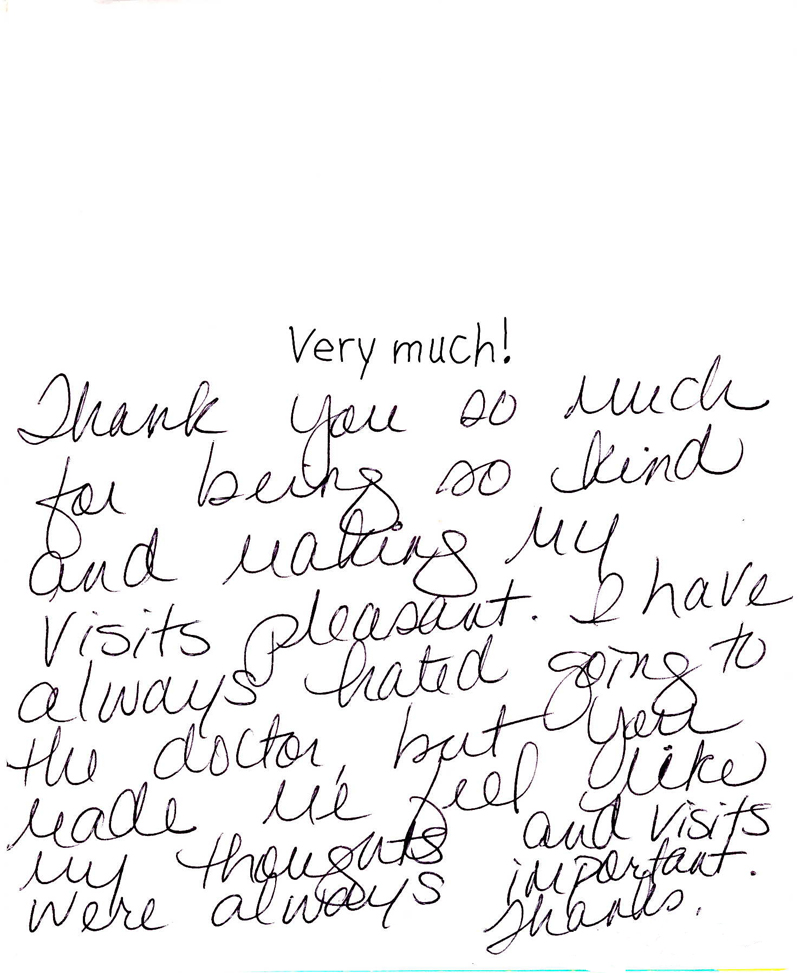 Very much!
Thank you so much
for being so kind
and making my
visits pleasant. I have
always hated going to
the doctor, but you
made me feel like
my thoughts and visits
were always important.
Thanks.